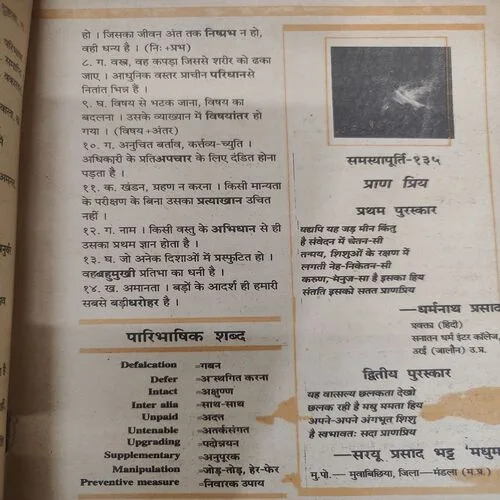 हो । जिसका जीवन अंत तक निष्प्रभ न हो,
वही धन्य है । (निः+प्रभ)
८. ग. वस्त्र, वह कपड़ा जिससे शरीर को ढका
जाए । आधुनिक वस्तर प्राचीन परिधानसे
नितांत भिन्न हैं ।
९. घ. विषय से भटक जाना, विषय का
बदलना । उसके व्याख्यान में विषयांतर हो
गया । (विषय+अंतर)
१०. ग. अनुचित बर्ताव, कर्त्तव्य-च्युति ।
अधिकारी के प्रतिअपचार के लिए दंडित होना
पड़ता है ।
११. क. खंडन, ग्रहण न करना । किसी मान्यता
के परीक्षण के बिना उसका प्रत्याखान उचित
नहीं ।
१२. ग. नाम । किसी वस्तु के अभिधान से ही
उसका प्रथम ज्ञान होता है ।
१३. घ. जो अनेक दिशाओं में प्रस्फुटित हो ।
वहबहुमुखी प्रतिभा का धनी है ।
१४. ख. अमानता । बड़ों के आदर्श ही हमारी
सबसे बड़ीधरोहर है ।
पारिभाषिक शब्द
Defalcation =गबन
Defer =अस्थगित करना
Intact =अक्षुण्ण
Inter alia =साथ-साथ
Unpaid =अदत्त
Untenable =अतर्कसंगत
Upgrading =पदोन्नयन
Supplementary =अनुपूरक
Manipulation =जोड़-तोड़, हेर-फेर
Preventive measure =निवारक उपाय
समस्यापूर्ति-१३५
प्राण प्रिय
प्रथम पुरस्कार
यद्यपि यह जड़ मीन किंतु
है संवेदन में चेतन-सी
तन्मय, शिशुओं के रक्षण में
लगती नेह-निकेतन-सी
करुण, मनुज-सा है इसका हिय
संतति इसको सतत प्राणप्रिय
—धर्मनाथ प्रसाद
प्रवक्ता (हिंदी)
सनातन धर्म इंटर कॉलेज,
उरई (जालौन) उ.प्र.
द्वितीय पुरस्कार
यह वात्सल्य छलकता देखो
छलक रही है मधु ममता हिय
अपने-अपने अंगभूत शिशु
है स्वभावतः सदा प्राणप्रिय
—सरयू प्रसाद भट्ट 'मधुम
मु.पो.— मुवाबिछिया, जिला—मंडला (म.प्र.)